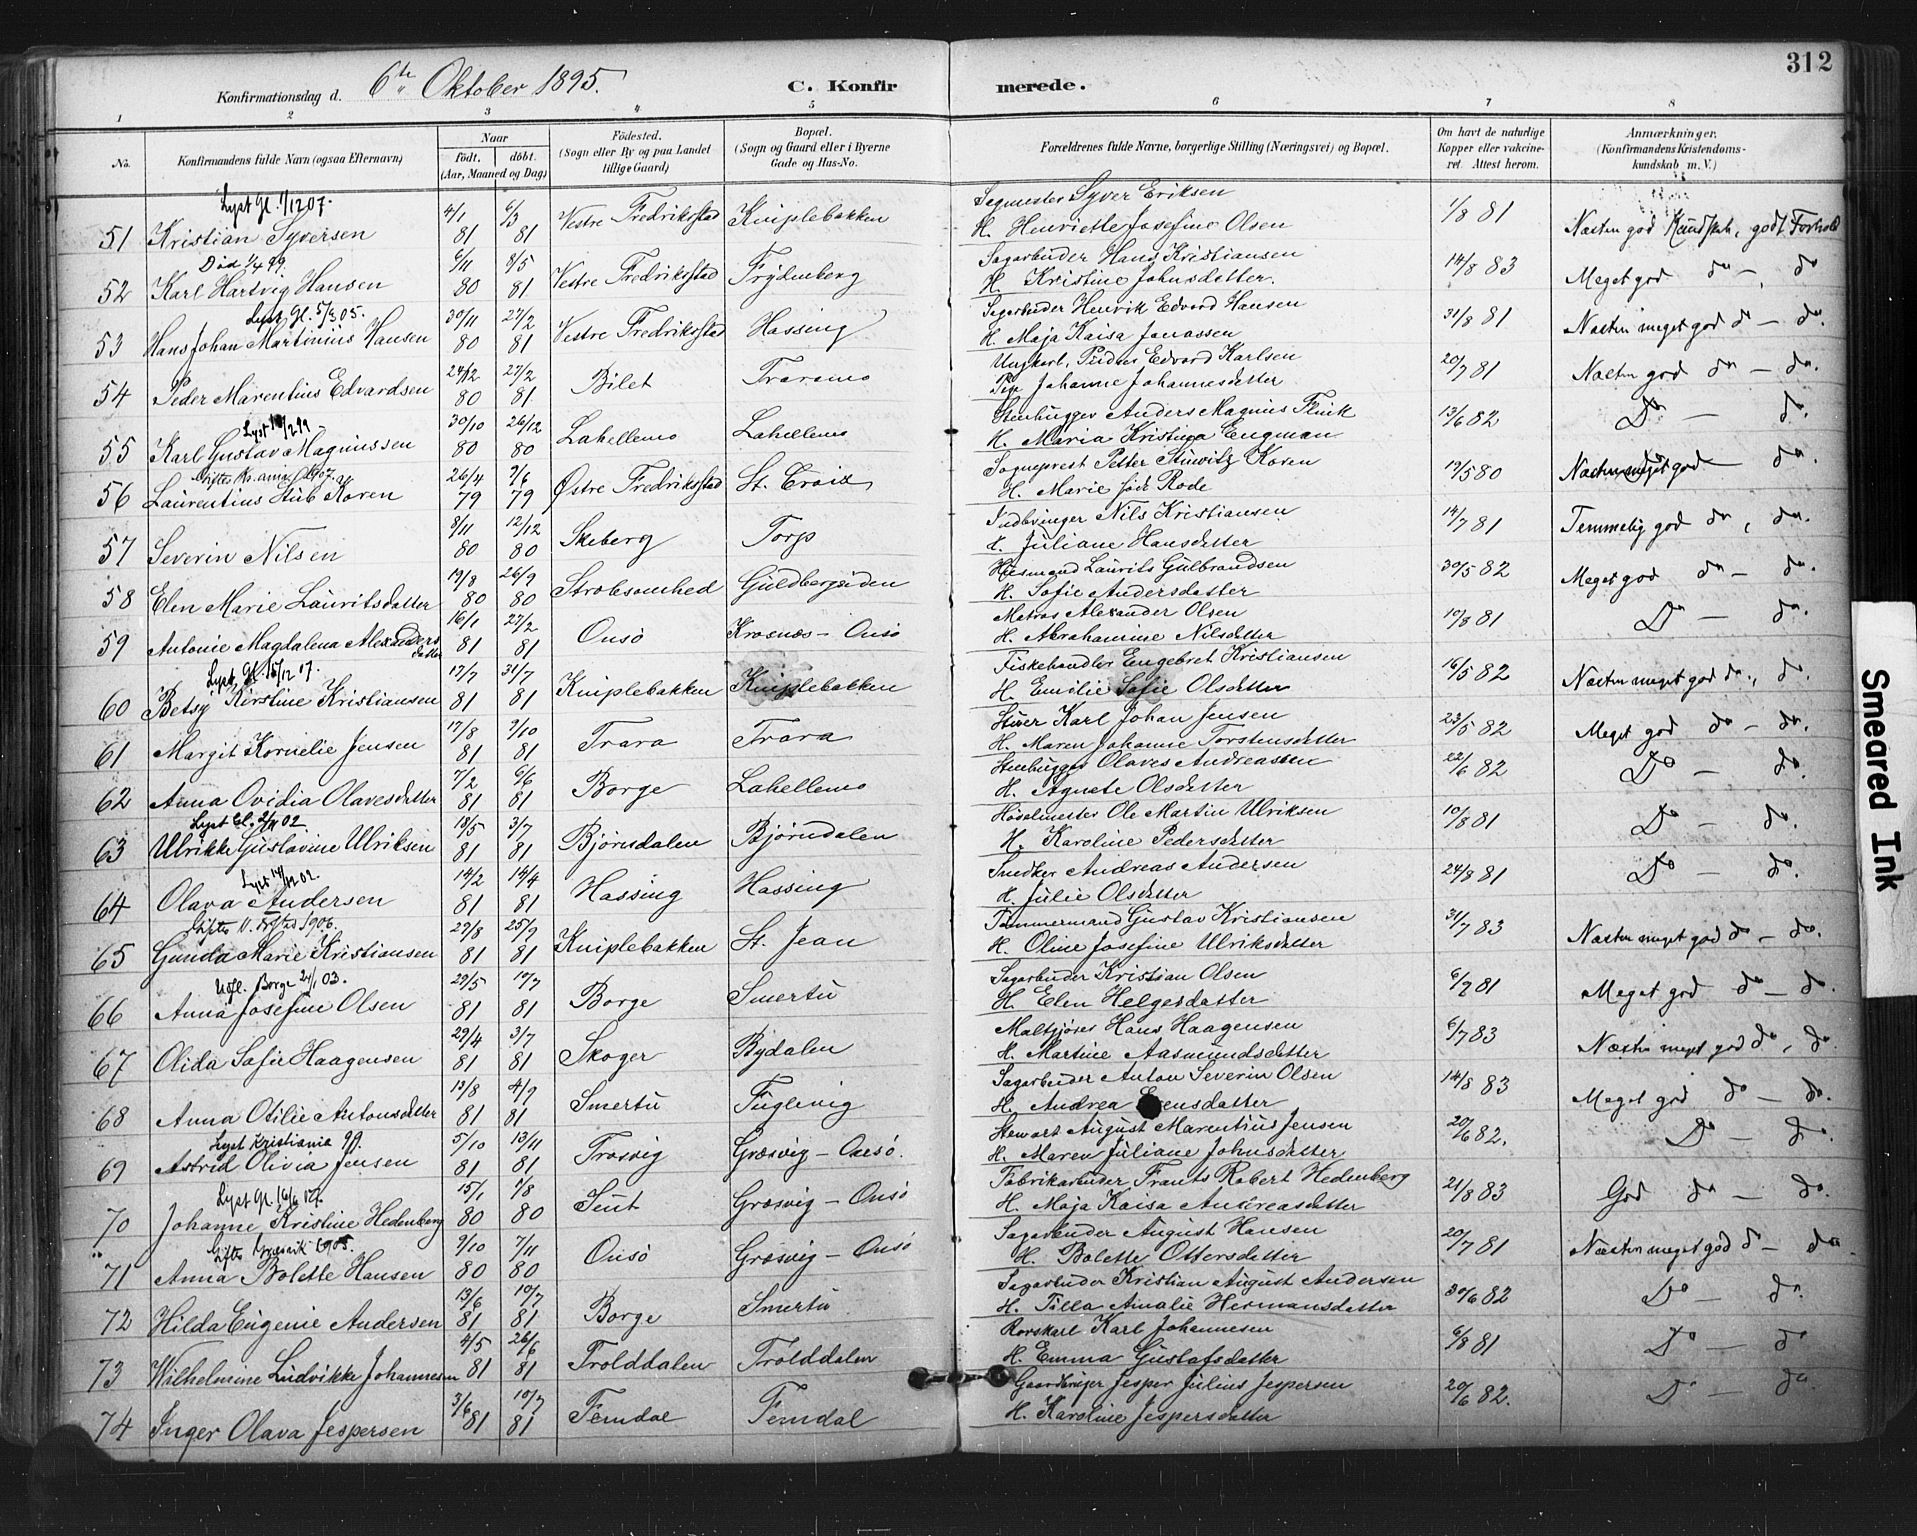 312
Konfirmationsdag d. 6te Oktober 1895.
C. Konfirmerede.
1 2 3 4 5 6 7 8
No.
Konfirmandens fulde Navn (ogsaa Efternavn)
Naar
födt. döbt.
(Aar, Maaned og Dag)
Födested.
(Sogn eller By og paa Landet
tillige Gaard)
Bopæl.
(Sogn og Gaard eller i Byerne
Gade og Hus-No.
Forældrenes fulde Navne, borgerlige Stilling (Næringsvei) og Bopæl.
Om havt de naturlige
Kopper eller vakcine-
ret. Attest herom.
Anmærkninger.
(Konfirmandens Kristendoms-
kundskab m. V.)
Lyst Gl. 1/12 07.
51 Kristian Syversen 4/1 81 6/3 81 Vestre Fredriksstad Kniplebakken
Sagmester Syver Eriksen
H. Henriette Josefine Olsen
1/8 81 Næsten god Kundskab, godt Forhold
Död 1/4 99.
52 Karl Hartvig Hansen 6/11 80 8/5 81 Vestre Fredriksstad Frydenberg
Sagarbeider Hans Kristiansen
H. Kristine Johnsdatter.
14/8 83 Meget god do — do
Lyst Gl. 5/3 05.
53 Hans Johan Martinius Hansen 30/11 80 27/2 81 Vestre Fredriksstad Hassing
Sagarbeider Henrik Edvard Hansen
H. Maja Kaisa Jonassen
31/8 81 Næsten meget god do — do.
54 Peder Marentius Edvardsen 24/12 80 27/2 81 Bilet Traramo
Ungkarl, Edvard Karlsen
Pige Johanne Johannesdatter
20/7 81 Næsten god do — do.
55 Karl Gustav Magnussen 30/10 80 26/12 80 Lahellemo Lahellemo
Stenhugger Anders Magnus Flink
H. Maria Kristina Engman
13/6 82 Do — do.
56 Laurentius Stub Koren 26/4 79 9/6 79 Østre Fredriksstad St. Croix
Sogneprest Petter Stüwitz Koren
H. Marie född Rode
19/5 80 Næsten meget god — do.
57 Severin Nilsen 8/11 80 12/12 80 Skeberg Torp
Indbringer Nils Kristiansen
H. Juliane Hansdatter
14/7 81 Temmelig god do, do.
58 Elen Marie Lauritsdatter 19/8 80 26/9 80 Strobsomhed Guldbergsiden
Husmand Laurits Gulbrandsen
H. Sofie Andersdatter
30/5 82 Meget god do — do.
59 Antonie Magdalena Alexandersdatter 16/1 81 27/2 81 Onsö Krosnæs — Onsö
Matros Alexander Olsen
H. Abrahamine Nilsdatter
19/8 81 Do — do.
Lyst. Gl. 15/12 07.
60 Betsy Kirstine Kristiansen 17/7 81 31/7 81 Kniplebakken Kniplebakken
Fiskehandler Engebret Kristiansen
H. Emilie Sofie Olsdatter
16/5 82 Næsten meget god do, do.
61 Margit Kornelie Jensen 17/8 81 9/10 81 Trara Trara
Stuer Karl Johan Jensen
H. Maren Johanne Torstensdatter
23/5 82 Meget god do — do.
62 Anna Ovidia Olavesdatter 7/2 81 6/6 81 Borge Lahellemo
Stenhugger Olaves Andreassen
H. Agnete Olsdatter
22/6 82 Do — do.
63 Ulrikke Gustavine Ulriksen 18/5 81 3/7 81 Björnsdalen Björndalen
Hövelmester Ole Martin Ulriksen
H. Karoline Pedersdatter
10/8 81 Do — do.
64 Olava Andersen 14/2 81 14/4 81 Hassing Hassing
Snedker Andreas Andersen
H. Julie Olsdatter
24/8 81 Do — do.
65 Gunda Marie Kristiansen 29/8 81 25/9 81 Kniplebakken St. Jean
Tømmermand Gustav Kristiansen
H. Oline Josefine Ulriksdatter
31/7 83 Næsten meget god do — do.
Udfl. Borge 24/1 03.
66 Anna Josefine Olsen 29/5 81 10/7 81 Borge Smertu
Sagarbeider Kristian Olsen
H. Elen Helgesdatter
6/7 81 Meget god do — do.
67 Olida Sofie Haagensen 29/4 81 3/7 81 Skoger Bydalen
Maltgjører Hans Haagensen
H. Martine Aasmundsdatter
6/7 83 Næsten meget god do, do
68 Anna Otilie Antonsdatter 13/8 81 4/9 81 Smertu Fuglevig
Sagarbeider Anton Severin Olsen
H. Andrea
14/8 83 Meget god do — do.
Lyst Kristiania 99.
69 Astrid Olivia Jensen 5/10 81 13/11 81 Trosvig Græsvig — Onsö.
Stewart August Marentius Jensen
H. Maren Juliane Johnsdatter
20/6 82. Do — do.
70 Johanne Kristine Hedenberg 15/1 80 1/8 80 Seut Græsvig — Onsö
Fabrikarbeider Frants Robert Hedenberg
H. Maja Kaisa Andreasdatter
21/8 83 God do — do.
Gift Græsvik 1905.
71 Anna Bolette Hansen 9/10 80 7/11 80 Onsö Græsvig — Onsö
Sagarbeider August Hansen
H. Bolette Ottersdatter
20/7 81 Næsten meget god do — do
72 Hilda Eugenie Andersen 13/6 81 10/7 81 Borge Smertu
Sagarbeider Kristian August Andersen
H. Tilla Amalie Hermansdatter
30/6 82 Do — do.
73 Wilhelmine Ludvikke Johannesen 4/5 81 26/6 81 Trolddalen Trolddalen
Rorskarl Karl Johannesen
H. Emma Gustafsdatter
6/8 81 Do — do
74 Inger Olava Jespersen 3/6 81 10/7 81 Femdal Femdal
Gaardbruger Jesper Julius Jespersen
H. Karoline Jespersdatter
20/6 82. Do — do
Smeared Ink